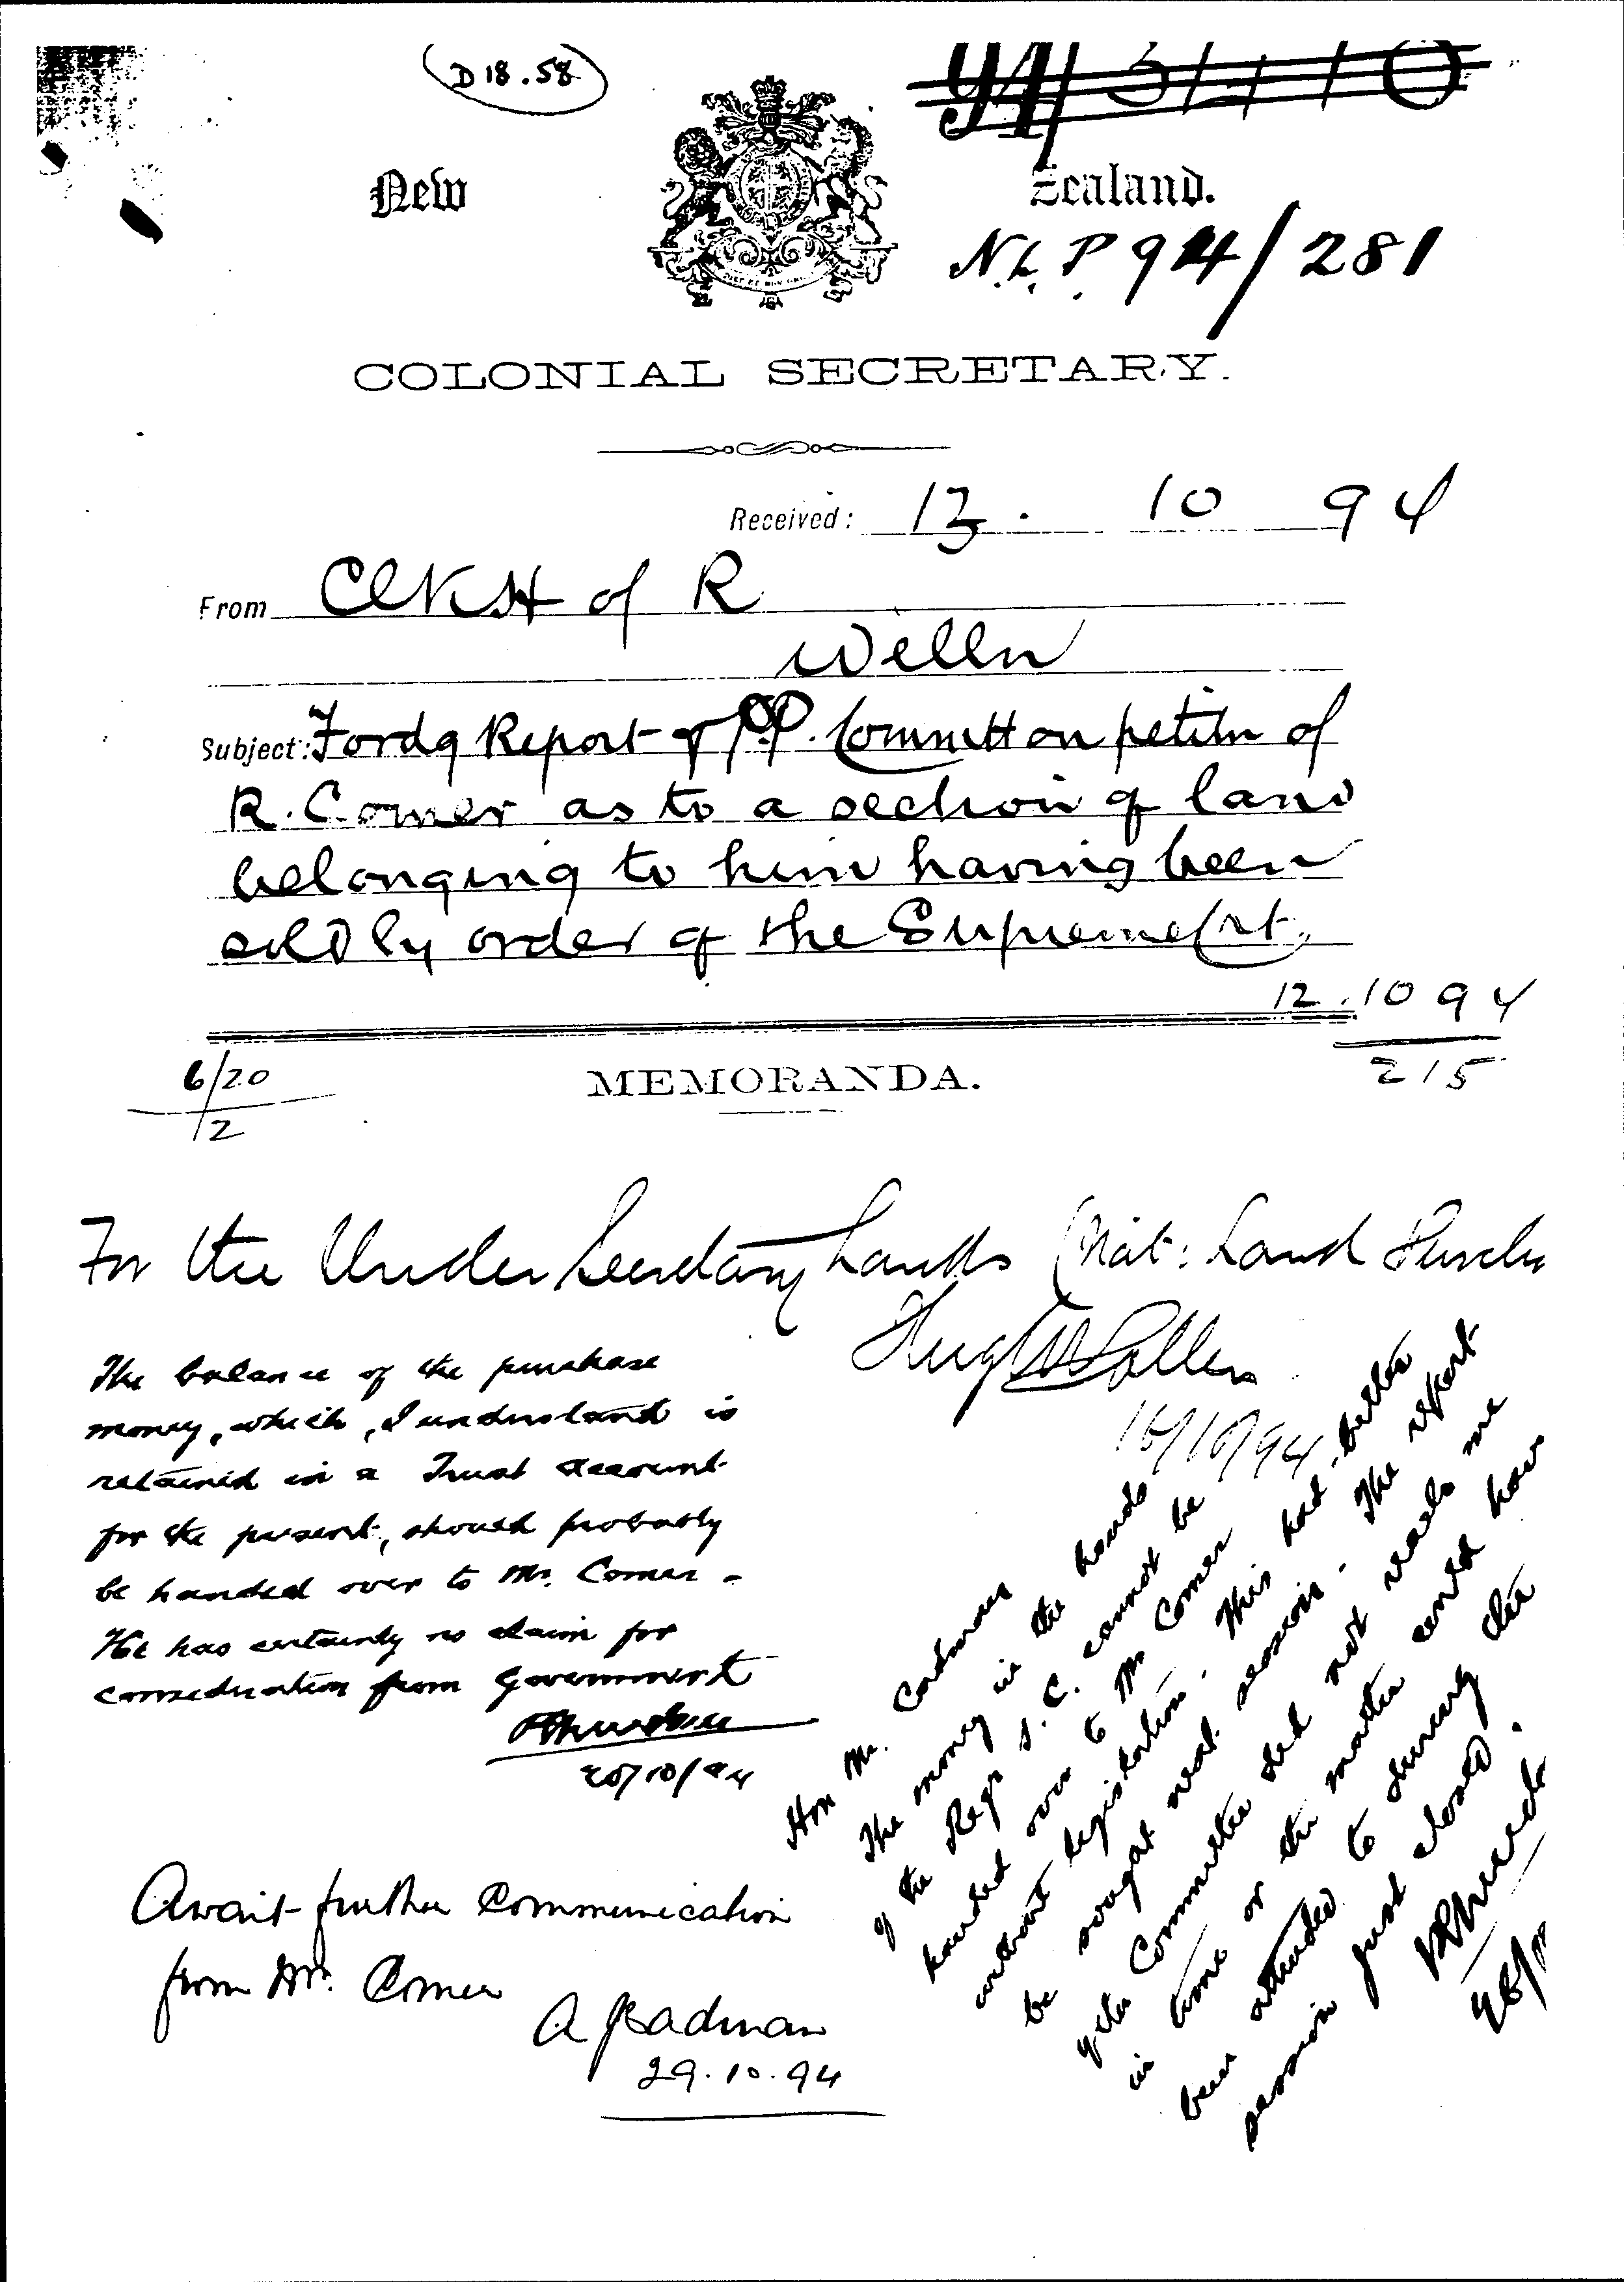 D 18.58
New Zealand.
N.L.P. 94/281
COLONIAL SECRETARY.
Received: 13. 10 94
From Clk H of R
Welln
Subject: Fordg Report of P.P. Committ on petitn of
R. Comer as to a section of land
belonging to him having been
sold by order of the Supreme Crt.
12.10 94
215
6/20
12
MEMORANDA.
For the Under Secretary Lands (Nat: Land Purch
Hugh Pollen
16/10/94
The balance of the purchase
money, which, I understand is
retained in a Trust Account
for the present, should probably
be handed over to Mr. Comer -
He has certainly no claim for
consideration from Government
20/10/94
Hon Mr. Cadman
The money in the hands
of the Regr S.C. cannot be
handed over to Mr Comer
without legislation. This had better
be sought next session. The report
of the Committee did not reach me
in time or the matter could have
been attended to during the
session just closed.
Await further Communication
from Mr. Comer
A J Cadman
29.10.94